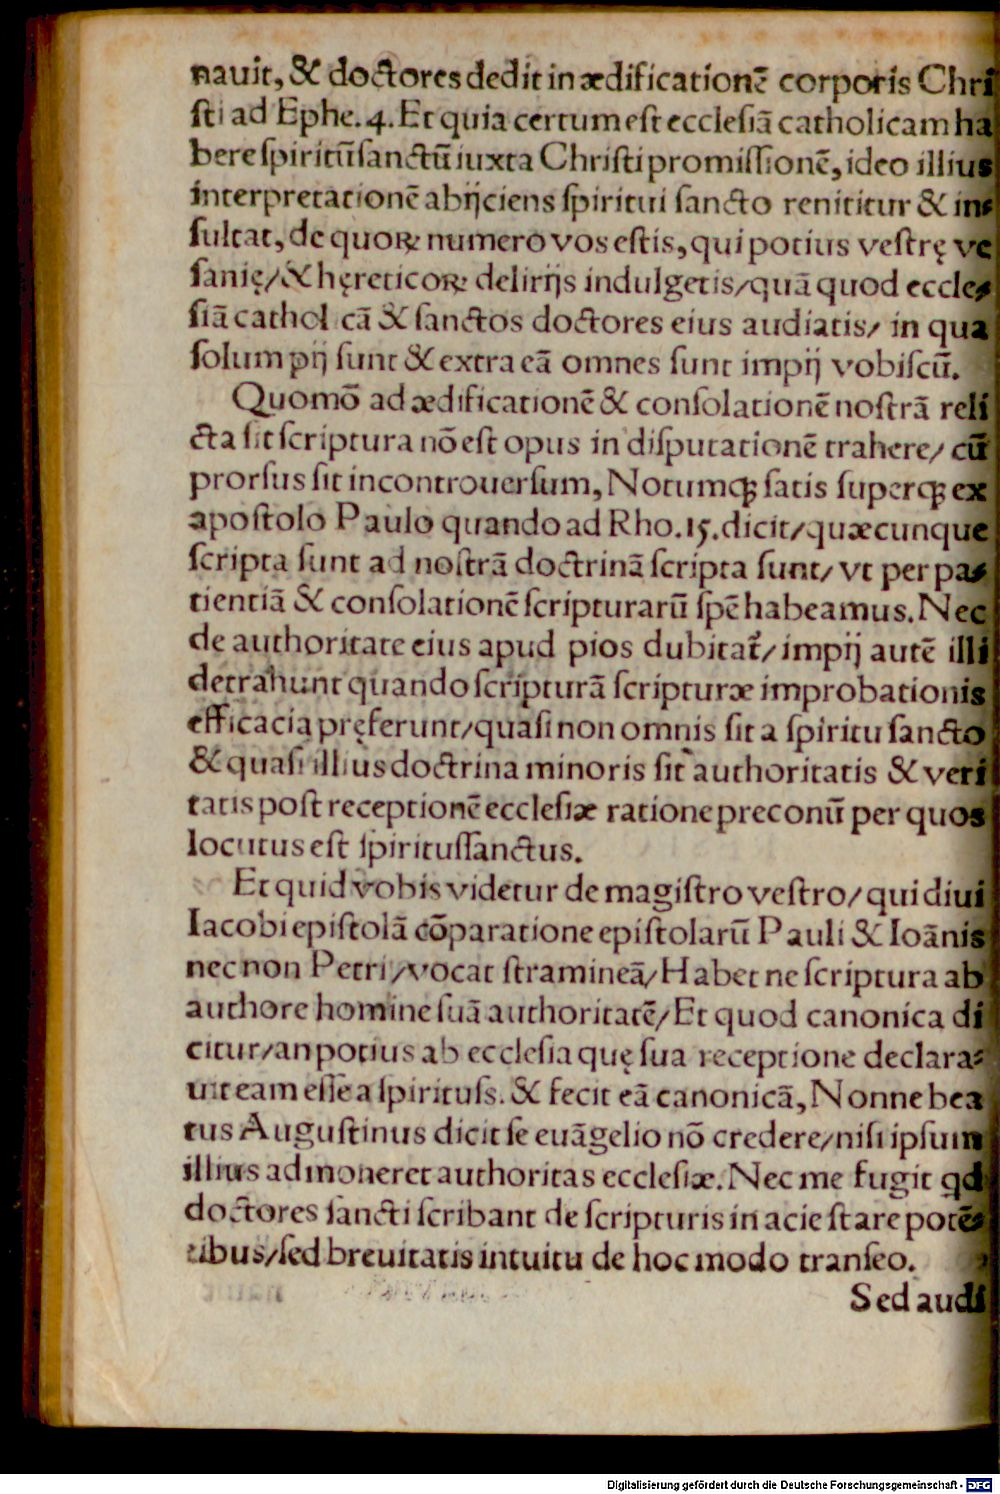 nauit, & doctores dedit in ædificationē corporis Chri
sti ad Ephe. 4. Et quia certum est ecclesiā catholicam ha
bere spiritū sanctū iuxta Christi promissionē, ideo illius
interpretationē abijciens spiritui sancto renititur & in⸗
sultat, de quoꝝ numero vos estis, qui potius vestrę ve
sanię/ & hęreticoꝝ delirijs indulgetis/ quā quod eccle⸗
siā catholicā & sanctos doctores eius audiatis/ in qua
solum pij sunt & extra eā omnes sunt impij vobiscū.
Quomō ad ædificationē & consolationē nostrā reli
cta sit scriptura nō est opus in disputationē trahere/ cū
prorsus sit incontrouersum, Notumqꝫ satis superqꝫ ex
apostolo Paulo quando ad Rho. 15. dicit/ quæcunque
scripta sunt ad nostrā doctrinā scripta sunt/ vt per pa⸗
tientiā & consolationē scripturarū spē habeamus. Nec
de authoritate eius apud pios dubitat᷑/ impij autē illi
detrahunt quando scripturā scripturæ improbationis
efficacia pręferunt/ quasi non omnis sit a spiritu sancto
& quasi illius doctrina minoris sit authoritatis & veri
tatis post receptionē ecclesiæ ratione preconū per quos
locutus est spiritussanctus.
Et quid vobis videtur de magistro vestro/ qui diui
Iacobi epistolā cōparatione epistolarū Pauli & Ioānis
nec non Petri/ vocat stramineā/ Habet ne scriptura ab
authore homine suā authoritatē/ Et quod canonica di
citur/ an potius ab ecclesia quę sua receptione declara⸗
uit eam esse a spirituss. & fecit eā canonicā, Nonne bea
tus Augustinus dicit se euāgelio nō credere/ nisi ipsum
illius admoneret authoritas ecclesiæ. Nec me fugit qd
doctores sancti scribant de scripturis in acie stare potē⸗
tibus/ sed breuitatis intuitu de hoc modo transeo.
Sed audi
Digitalisierung gefördert durch die Deutsche Forschungsgemeinschaft - DFG